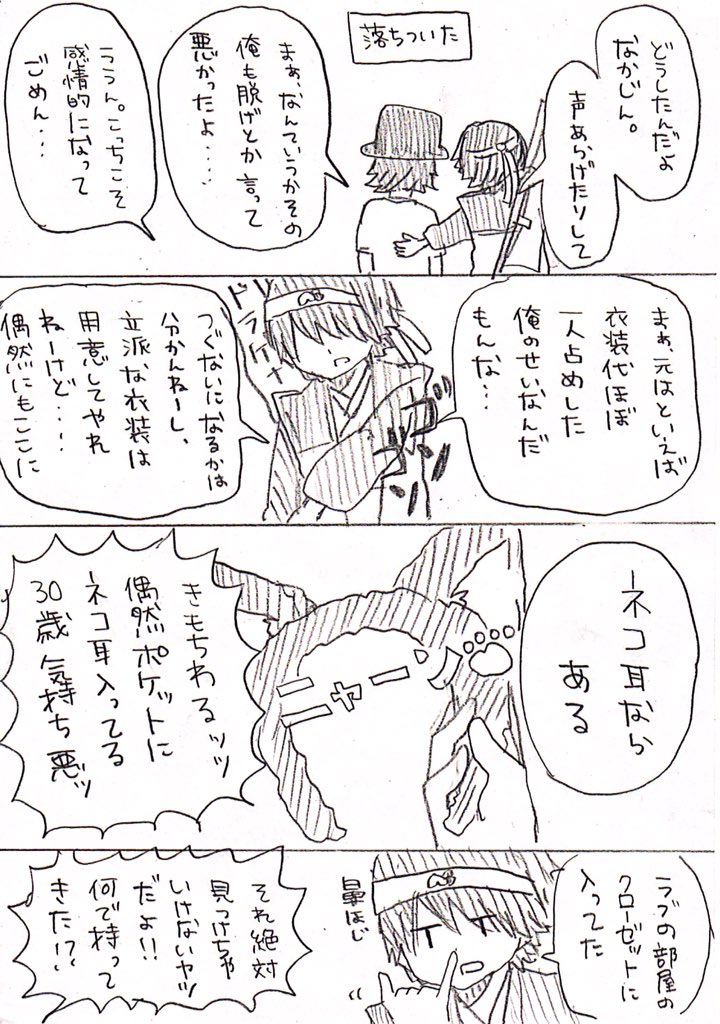 落ちついた
どうしたんだよ
なかじん。
声あらげたりして
まぁ、なんていうかその
俺も脱げとか言って
悪かったよ・・・・
ううん。こっちこそ
感情的になって
ごめん・・・
まぁ、元はといえば
衣装代ほぼ
一人占めした
俺のせいなんだ
もんな・・・
ゴソゴソ
つぐないになるかは
分かんねーし、
立派な衣装は
用意してやれ
ねーけど・・・・
偶然にもここに
ネコ耳なら
ある
ニャーン
きもちわるッッ
偶然ポケットに
ネコ耳入ってる
30歳気持ち悪ッ
ラブの部屋の
クローゼットに
入ってた
鼻ほじ
それ絶対
見つけちゃ
いけないヤツ
だよ!!
何で持って
きた!?